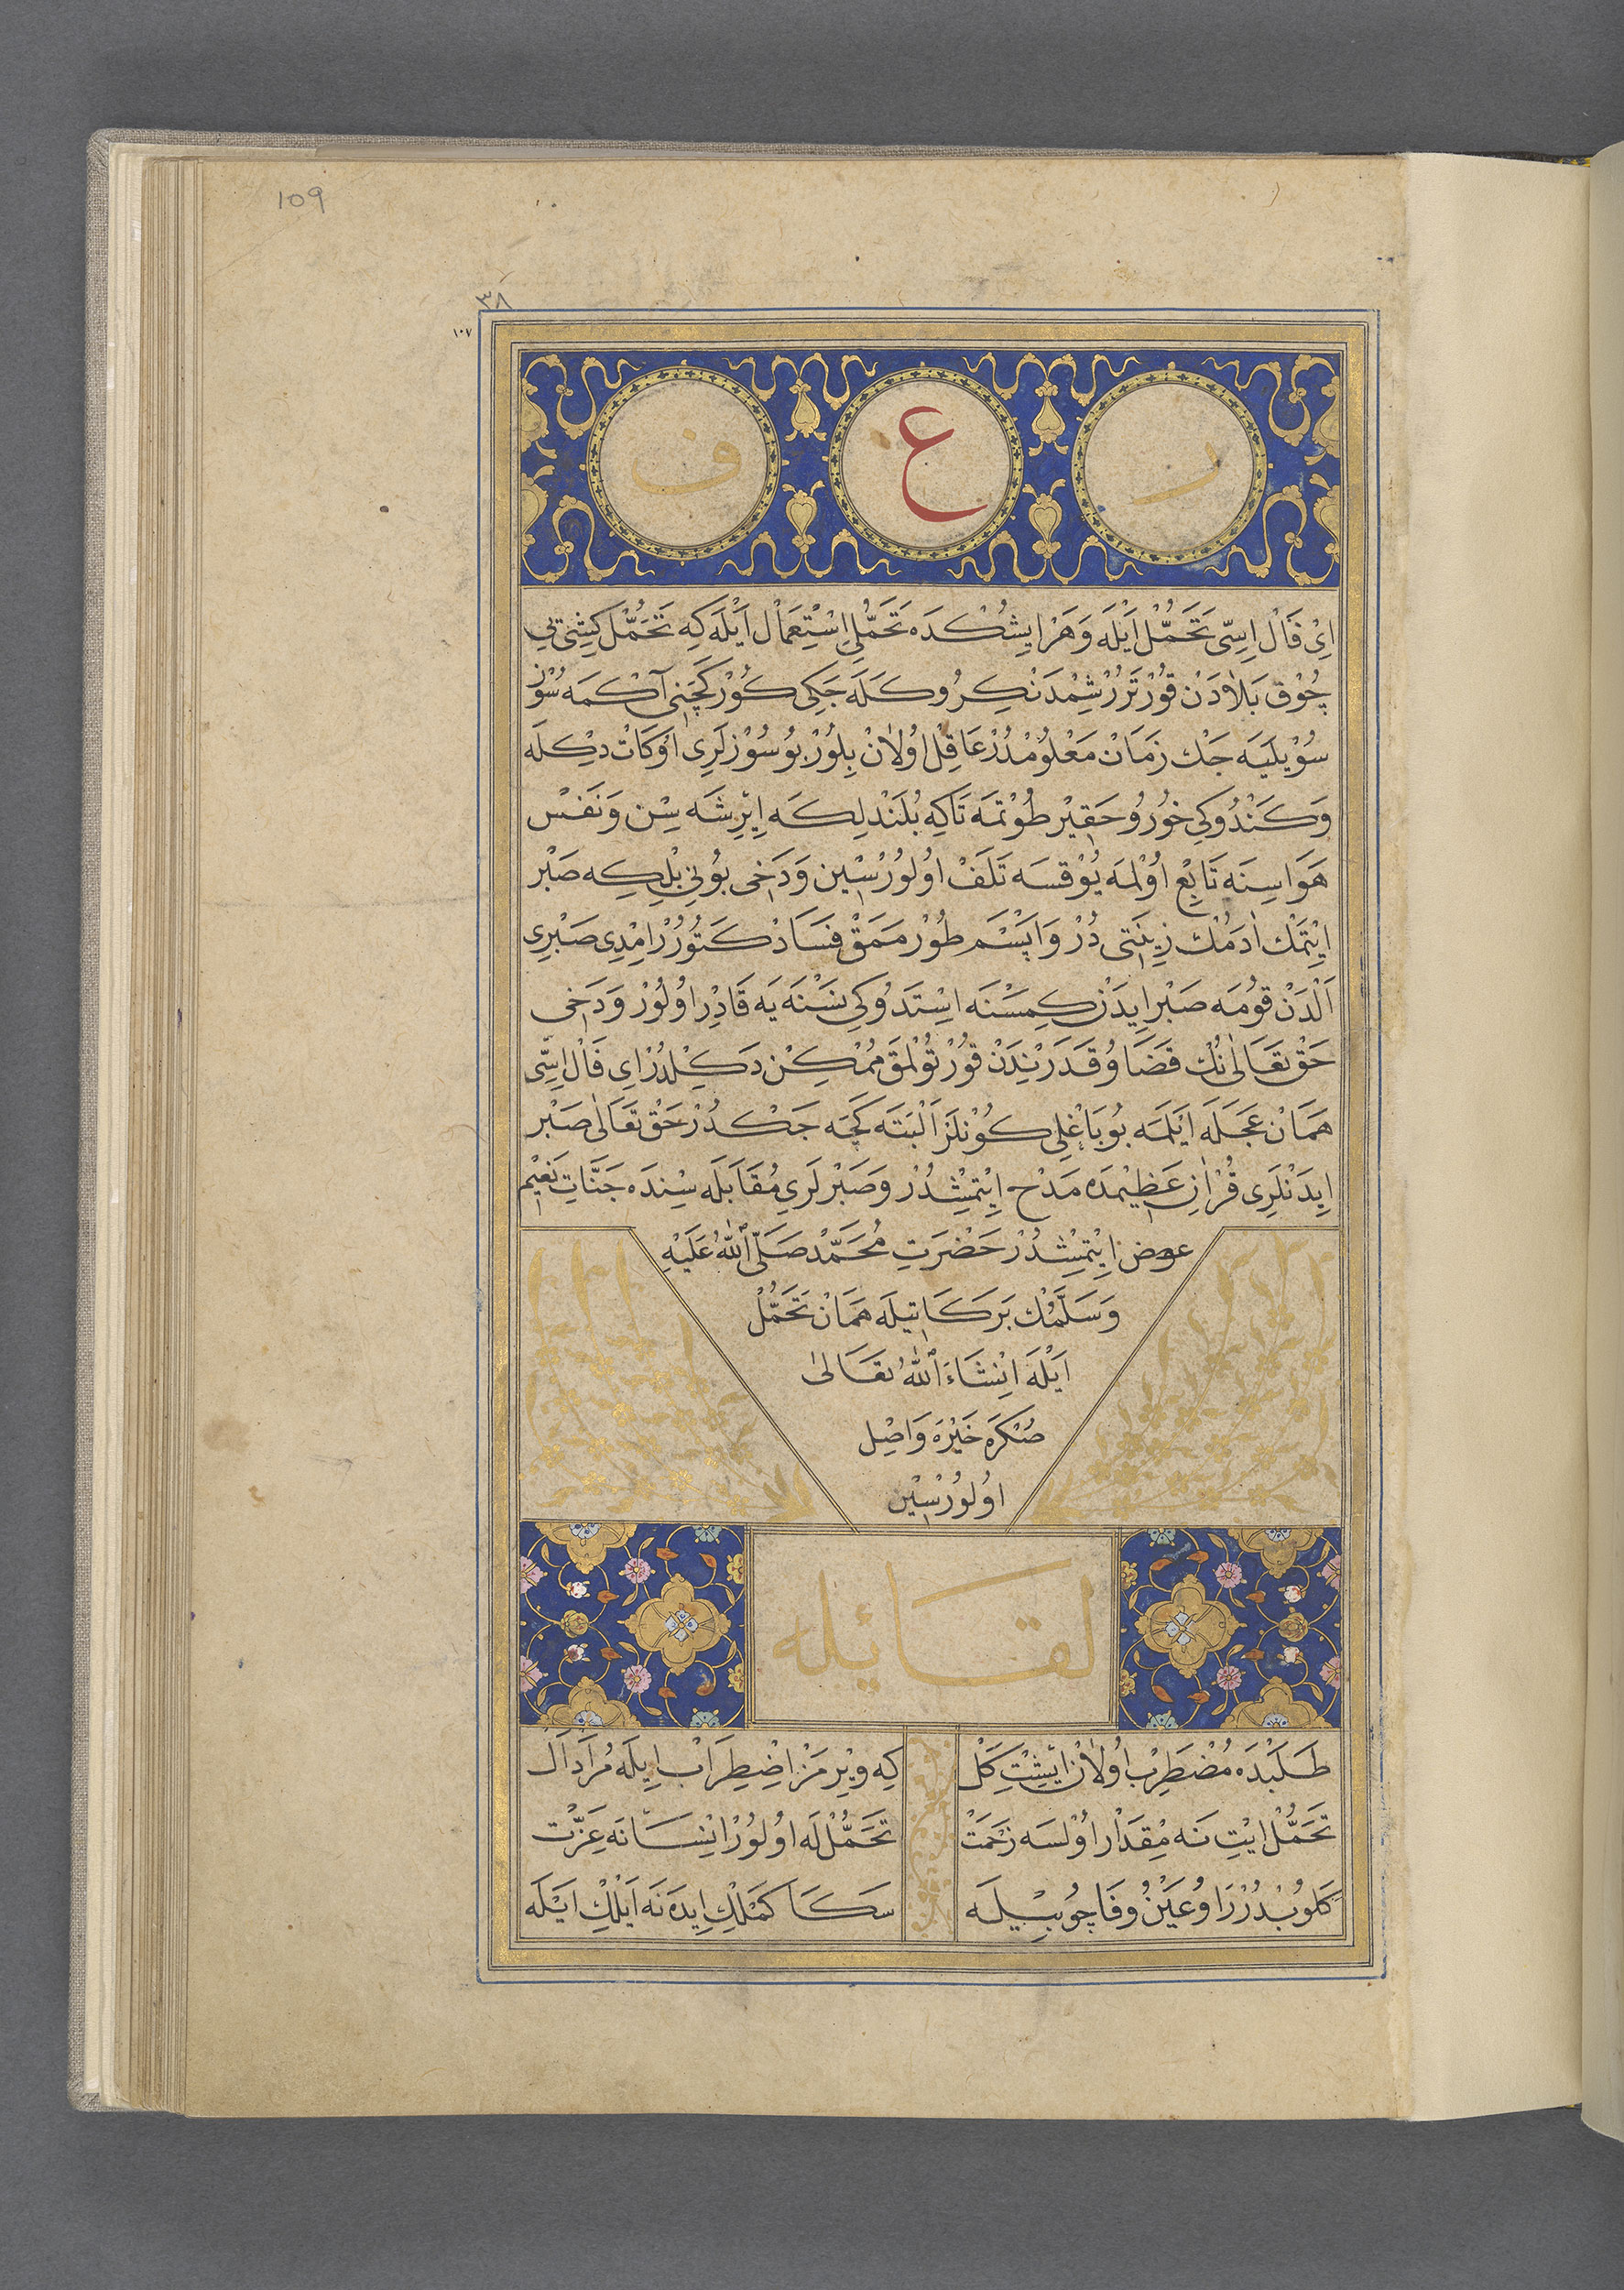 109
٣٨
١٠٧
ر ع ف
اِیْ فَالْ اِسِّی تَحَمُّلْ اَیْلَه وَهَرْ اِیشْكَدَه تَحَمُّلِ اِسْتِعْمَالْ اَیْلَه كِه تَحَمُّلْ كِشِی‌یِی
چُوْقْ بَلَاوْدَنْ قُوْرْتَرُرْ شِمْدَنْكِرُو كَلَه‌جَكِی كُوْر كَچَنِی آكْمَه سُوْزْ
سُوْیلَیَه‌جَكْ زَمَانْ مَعْلُوْمْدُرْ عَاقِلْ اُوْلَانْ بِلُوْرْ بُو سُوْزْلَرِی اُوْكَاتْ دِكْلَه
وَكَنْدُوْكِی خُورُ وُ حَقِیْرْ طُوْتْمَه تَاكِه بُلَنْدْلِكَه اِیْرِشَه سِنْ وَنَفْسْ
هَوَاسِنَه تَابِعْ اُوْلْمَه یُوْقسَه تَلَفْ اُولُوْرْسِیْن وَدَخِی بُوْنِی بِلْكِه صَبْر
اِیْتْمَكْ اٰدَمُكْ زِینَتِی دُرْ وَاپْسَمْ طُوْرْمَمَقْ فَسَادْ كَتُوْرُرْ اِمْدِی صَبْرِی
اَلْدَنْ قُوْمَه صَبْر اِیدَنْ كِمْسْنَه اِسْتَدُوْكِی نَسْنَه‌یَه قَادِرْ اُوْلُوْرْ وَدَخِی
حَقْ تَعَالٰی‌نُكْ قَضَا وُ قَدَرِنْدَنْ قُوْرْتُوْلْمَقْ مُمْكِنْ دَكِلْدُرْ اِی فَالْ اِسِّی
هَمَانْ عَجَلَه اَیْلَمَه بُو بَاغْلِی كُوْنْلَرْ اَلْبَتَه كَچَه‌جَكْدُرْ حَقْ تَعَالٰی صَبْر
اِیدَنْلَرِی قُرْاٰنِ عَظِیْمْدَه مَدْح اِیْتْمِشْدُرْ وَصَبْرْلَرِی مُقَابَلَه‌سِنْدَه جَنَّاتِ نَعِیْم
عوض اِیْتْمِشْدُرْ حَضْرَتِ مُحَمَّدْ صَلَّی ٱللّٰهُ عَلَیْهِ
وَسَلَّمْكْ بَرَكَاتِیلَه هَمَانْ تَحَمُّلْ
اَیْلَه اِنْشَاءَ ٱللّٰهُ تَعَالٰی
صُكْرَه خَیْرَه وَاصِلْ
اُولُوْرْسِیْن
لقائله
طَلَبْدَه مُضْطَرِبْ اُوْلَانْ اِیْشِیتْ كَلْ
كِه وِیْرْمَزْ اِضْطِرَابْ اِیلَه مُرَادْ اَلْ
تَحَمُّلْ اِیْتْ نَه مِقْدَارْ اُوْلْسَه زَحْمَتْ
تَحَمُّلْلَه اُولُوْرْ اِنْسَانَه عِزَّتْ
كَلُوْبْدُرْ رَا وُ عَیْنُ وُ فَا چُو بِیْلَه
سَكَا كَمْلِكْ اِیدَنَه اَیْلِكْ اَیْلَه